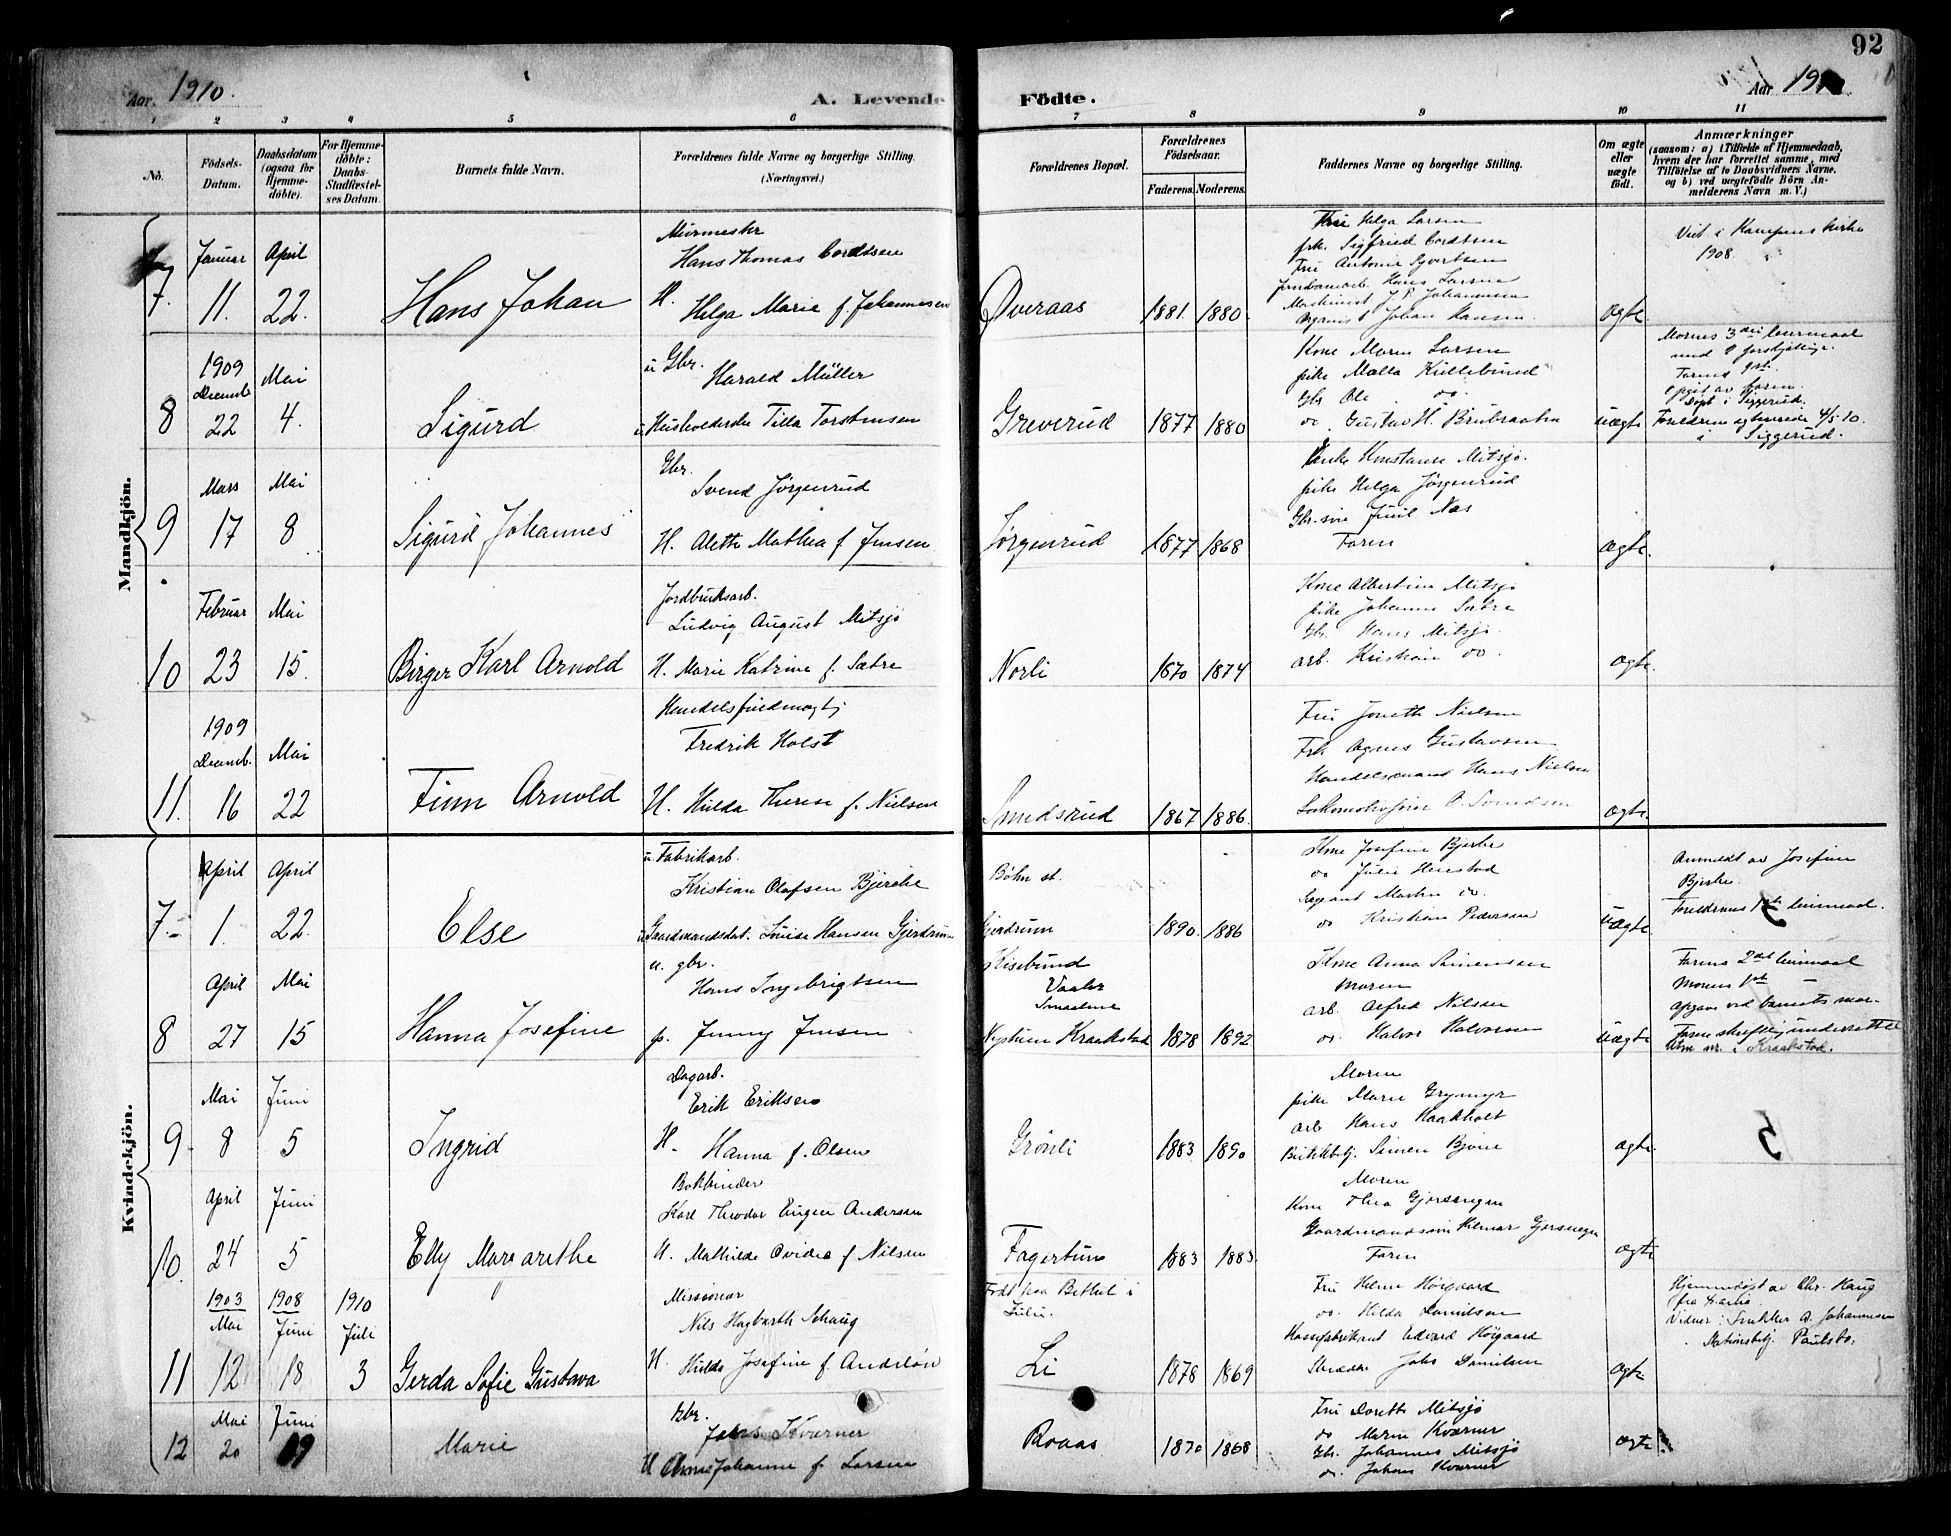 92
Aar 1910.
A. Levende Födte.
Aar 1910
1 2 3 4 5 6 7 8 9 10 11
No.
Födsels-Datum.
Daabsdatum (ogsaa for Hjemmedöbte).
For Hjemmedöbte: Daabs-Stadfæstelses Datum.
Barnets fulde Navn.
Forældrenes fulde Navne og borgerlige Stilling. (Næringsvei.)
Forældrenes Bopæl.
Forældrenes Födselsaar.
Faderens. Moderens.
Faddernes Navne og borgerlige Stilling.
Om ægte eller uægte født.
Anmærkninger
(saasom: a) i Tilfælde af Hjemmedaab, hvem der har forrettet samme, med Tilföielse af to Daabsvidners Navne, og b) ved uægtefödte Börn Anmelderens Navn m. V.)
Mandkjön.
7.
Januar 11.
April 22.
Hans Johan
Murmester
Hans Thomas Cordtsen
H. Helga Marie f. Johannesen
Øveraas
1881. 1880.
Fru Helga Larsen
frk. Sigfried Cordtsen
Fru Antonie
Hans Larsen
Maskinist J. P. Johannesen
Organist Johan Hansen.
ægte.
Viet i Kampens kirke
1908.
8
1909
Decemb. 22
Mai 4.
Sigurd
u Gbr.
Harald Müller
u Husholderske Tilla Torstensen
Greverud
1877 1880
Kone Maren Larsen
pike Malla Killebund
Gbr Ole do.
do. Gustav H.
uægte
Mornes 3die leiermaal
med 2 forskjellige.
Farens 1st.
Opgit av faren.
Døpt i Siggerud.
Foreldrene egteviede 4/5 10.
i Siggerud.
9
Mars 17
Mai 8
Sigurd Johannes
Gbr.
Svend Jørgenrud
H. Alette Mathea f. Jensen
Jørgenrud
1877 1868
Enke Konstanse Mitsjø.
pike Helga Jørgenrud
Gbr.søn Juul Næs
Faren
ægte.
10
Februar 23
Mai 15.
Birger Karl Arnold
Jordbruksarb.
Ludvig August Mitsjø
H. Marie Katrine f. Sætre
Norli
1870 1874
Kone Albertine Mitsjø
pike Johanne Sætre
Gbr. Hans Mitsjø.
arb. Kristian do.
ægte.
11.
1909
Decemb. 16
Mai 22
Finn Arnold
Handelsfuldmægtig
Fredrik Holst
H. Hilda Therese f. Nielsen
Smedsrud
1867 1886.
Fru Jonette Nielsen
Frk Agnes Gustavsen
Handelsmand Hans Nielsen
Lokomotivfører Svendsen
ægte.
Kvindekjön.
7.
April 1.
April 22.
Else
u. Fabrikarb.
Kristian Olafsen Bjerke
u Gaardmandsdat. Louise Hansen Gjerdrum
Bøhn st.
Gjerdrum
1890. 1886
Kone Josefine Bjerke
do Julie
Martin do.
do Kristian Pedersen
uægte
Anmeldt av Josefine
Bjerke.
Foreldrenes 1ste leiermaal.
8
April 27
Mai 15
Hanna Josefine
u. gbr.
Hans Ingebrigtsen
p. Jenny Jensen
Kisebund
Vaaler
Smaalene
Kraakstad
1878 1892
Kone Anna Simensen
Moren
arb. Alfred Nilsen
do. Halvor Halvorsen
uægte
Farens 2det leiermaal
Morens 1ste
opgav ved barnets mor.
Faren skriftlig underrettet
i Kraakstad.
9
Mai 8
Juni 5
Ingrid
Dagarb.
Erik Eriksen
H. Hanna f. Olsen
Grønli
1883 1890
Moren
pike Marie Grymyr
arb Hans Haakholt
Simen
ægte.
5
10.
April 24
Juni 5
Elly Margarethe
Bokbinder
Karl Theodor Eugen Andersen
H. Mathilde Ovidia f Nilsen
Fagertun
1883 1883.
Moren
Kone Thea Gjersengen
Gaardmandssøn Hilmar Gjersengen
Faren
ægte
11
1903 Mai 12
1908 Juni 18
1910 Juli 3
Gerda Sofie Gustava
Missionær
Nils Hagbarth Schaug
H. Hilda Josefine f. Andeløn
Født paa Bethel i
Li
1878 1869
Fru Helene Høigaard
do. Hilda Danielsen
Edvard Høigaard
Johs Danielsen
ægte
Hjemmedøpt av Chr. Haug
Vidner: A. Johannesen
Stationsbetj. Paulsbo.
12
Mai 20
Juni 19
Marie
Gbr.
Johs Kværner
H Johanne f. Larsen
Roaas
1870 1868
Fru Dorette Mitsjø
do Marie Kværner
Gbr. Johannes Mitsjø
do. Johan Kværner
ægte.